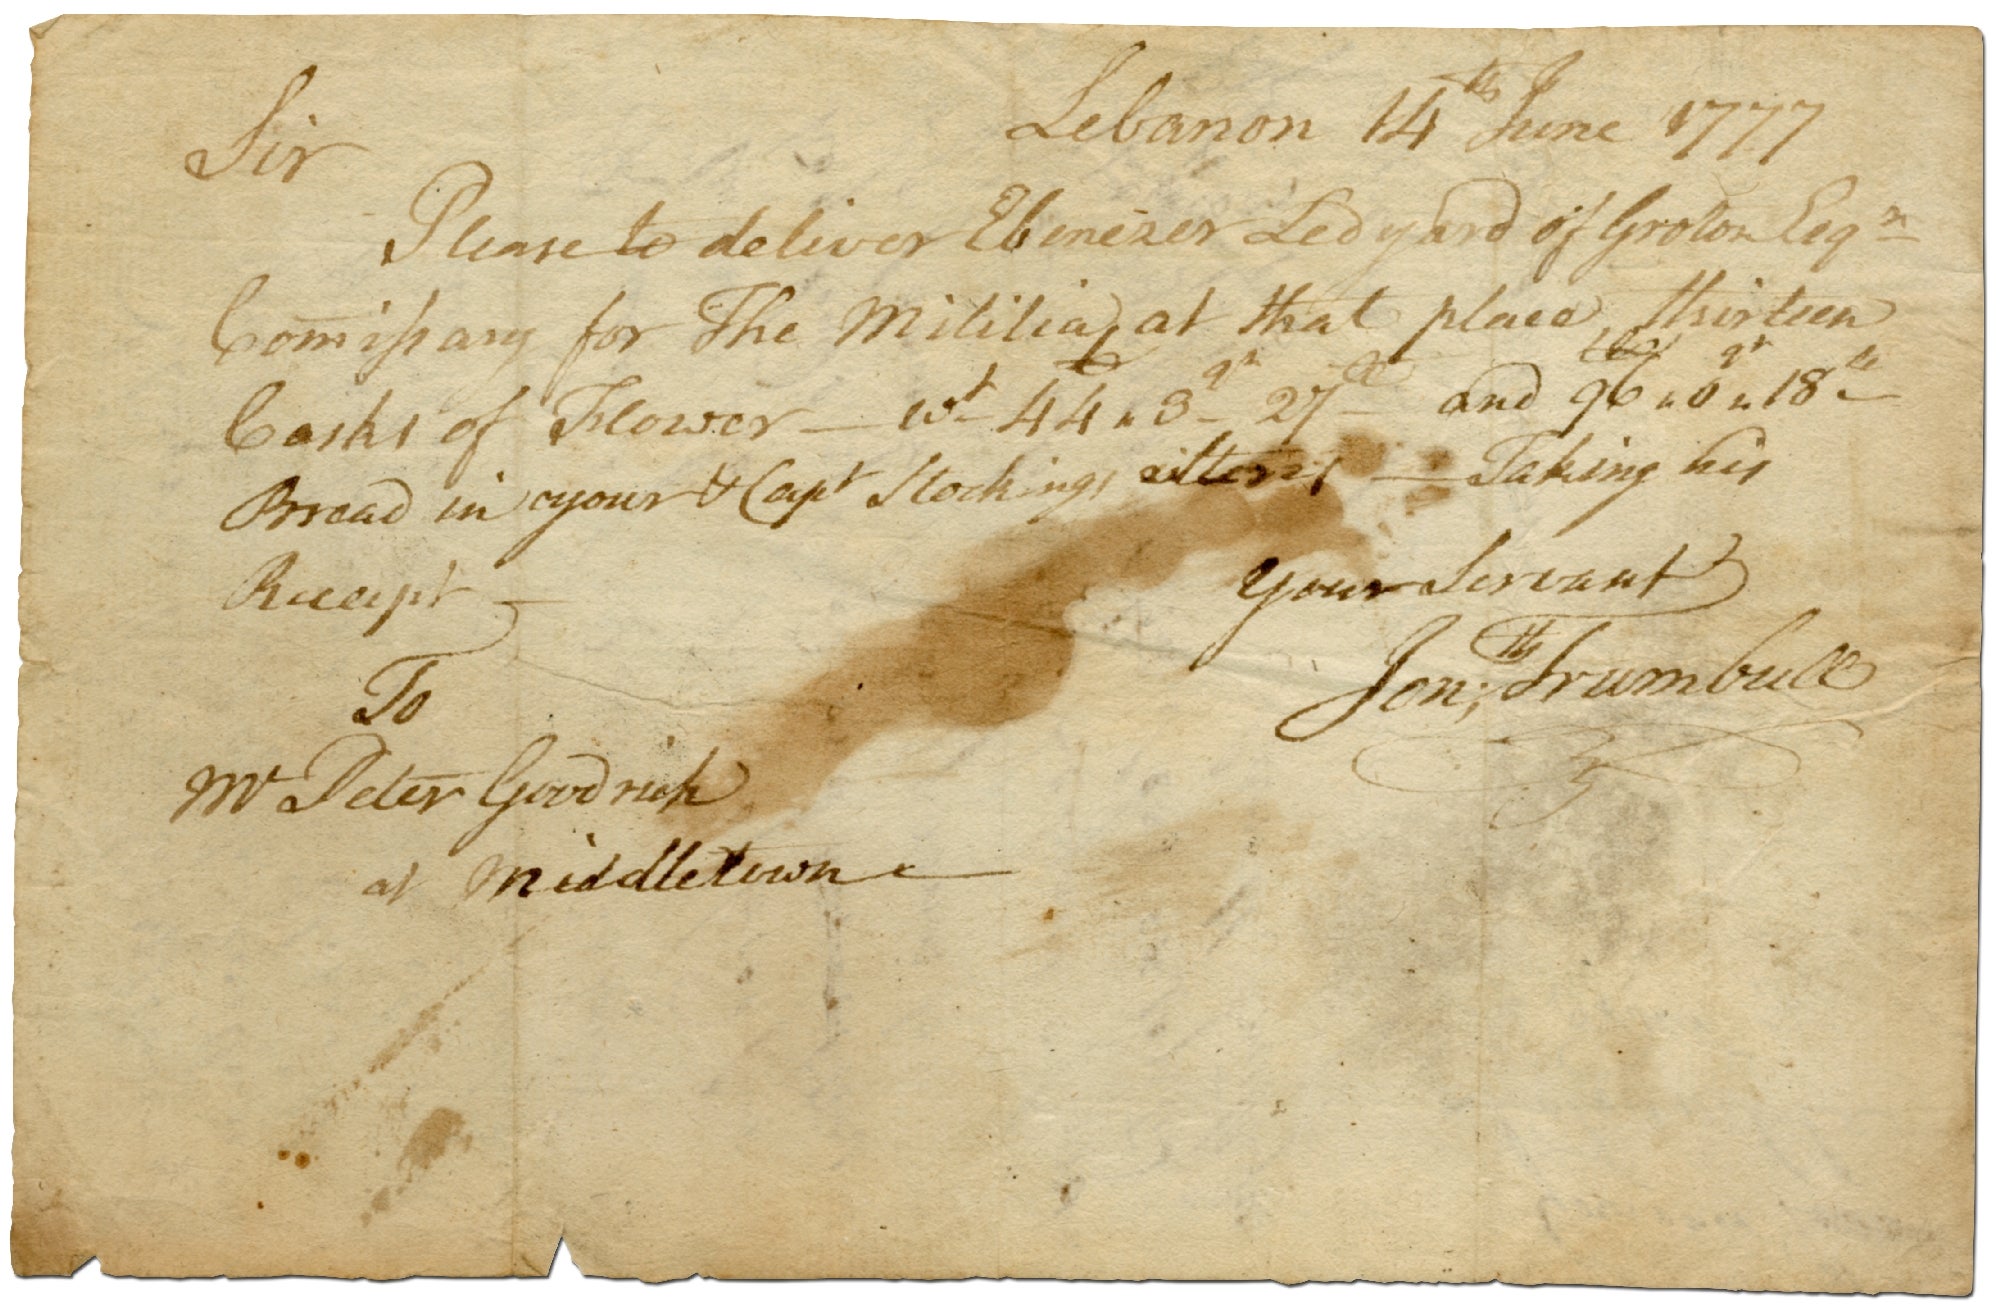 Lebanon 14th June 1777
Sir
Please to deliver Ebenezer Ledyard of Groton Esqr
Comissary for The Militia, at that place, thirteen
Casks of Flower — wt 44 " 3 qr 27 lb and 96 " 0 qr " 18 lb
Bread in your & Capt Stockings — Taking his
Receipt —
Your Servant
Jonth; Trumbull
To
Mr Peter Goodrich
at Middletown —